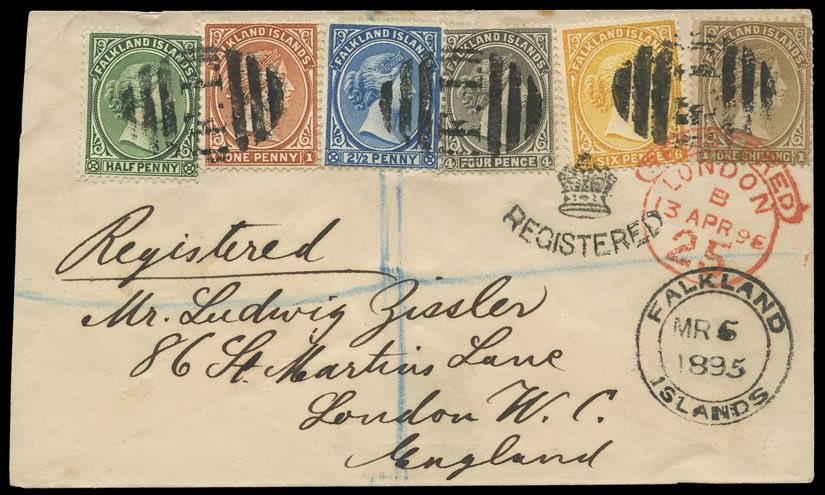 FALKLAND ISLANDS
HALF PENNY
FALKLAND ISLANDS
ONE PENNY 1
FALKLAND ISLANDS
2½ PENNY
FALKLAND ISLANDS
4 FOUR PENCE 4
FALKLAND ISLANDS
SIX PENCE 6
FALKLAND ISLANDS
1 ONE SHILLING 1
REGISTERED
REGISTERED
LONDON
B
13 APR 95
25
FALKLAND
MR 5
1895
ISLANDS
Registered
Mr. Ludwig Zissler
86 St. Martins Lane
London W. C.
England